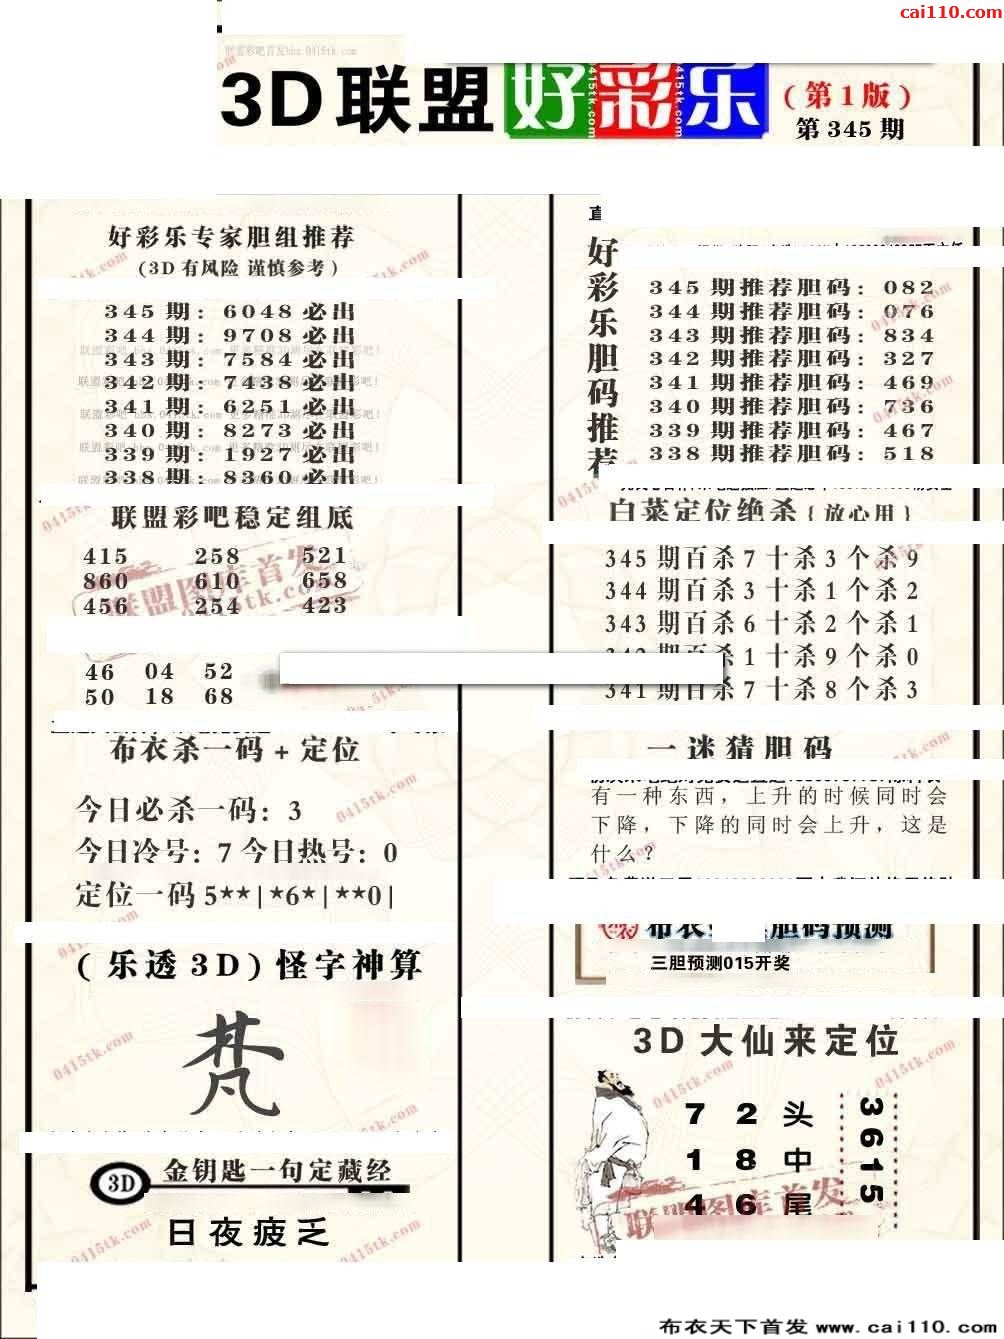 cai110.com
3D联盟好彩乐
(第1版)
第345期
好彩乐专家胆组推荐
(3D有风险 谨慎参考)
345期: 6048必出
344期: 9708必出
343期: 7584必出
342期: 7438必出
341期: 6251必出
340期: 8273必出
339期: 1927必出
338期: 8360必出
联盟彩吧稳定组底
415 258 521
860 610 658
456 254 423
46 04 52
50 18 68
布衣杀一码+定位
今日必杀一码: 3
今日冷号: 7 今日热号: 0
定位一码 5**|*6*|**0|
(乐透3D)怪字神算
梵
3D 金钥匙一句定藏经
日夜疲乏
好彩乐胆码推荐
345期推荐胆码: 082
344期推荐胆码: 076
343期推荐胆码: 834
342期推荐胆码: 327
341期推荐胆码: 469
340期推荐胆码: 736
339期推荐胆码: 467
338期推荐胆码: 518
白菜定位绝杀{放心用}
345期百杀7十杀3个杀9
344期百杀3十杀1个杀2
343期百杀6十杀2个杀1
342期百杀1十杀9个杀0
341期百杀7十杀8个杀3
一迷猜胆码
有一种东西，上升的时候同时会
下降，下降的同时会上升，这是
什么？
布衣 胆码预测
三胆预测015开奖
3D大仙来定位
7 2 头
1 8 中
4 6 尾
3615
联盟图库首发
0415tk.com
布衣天下首发 www.cai110.com